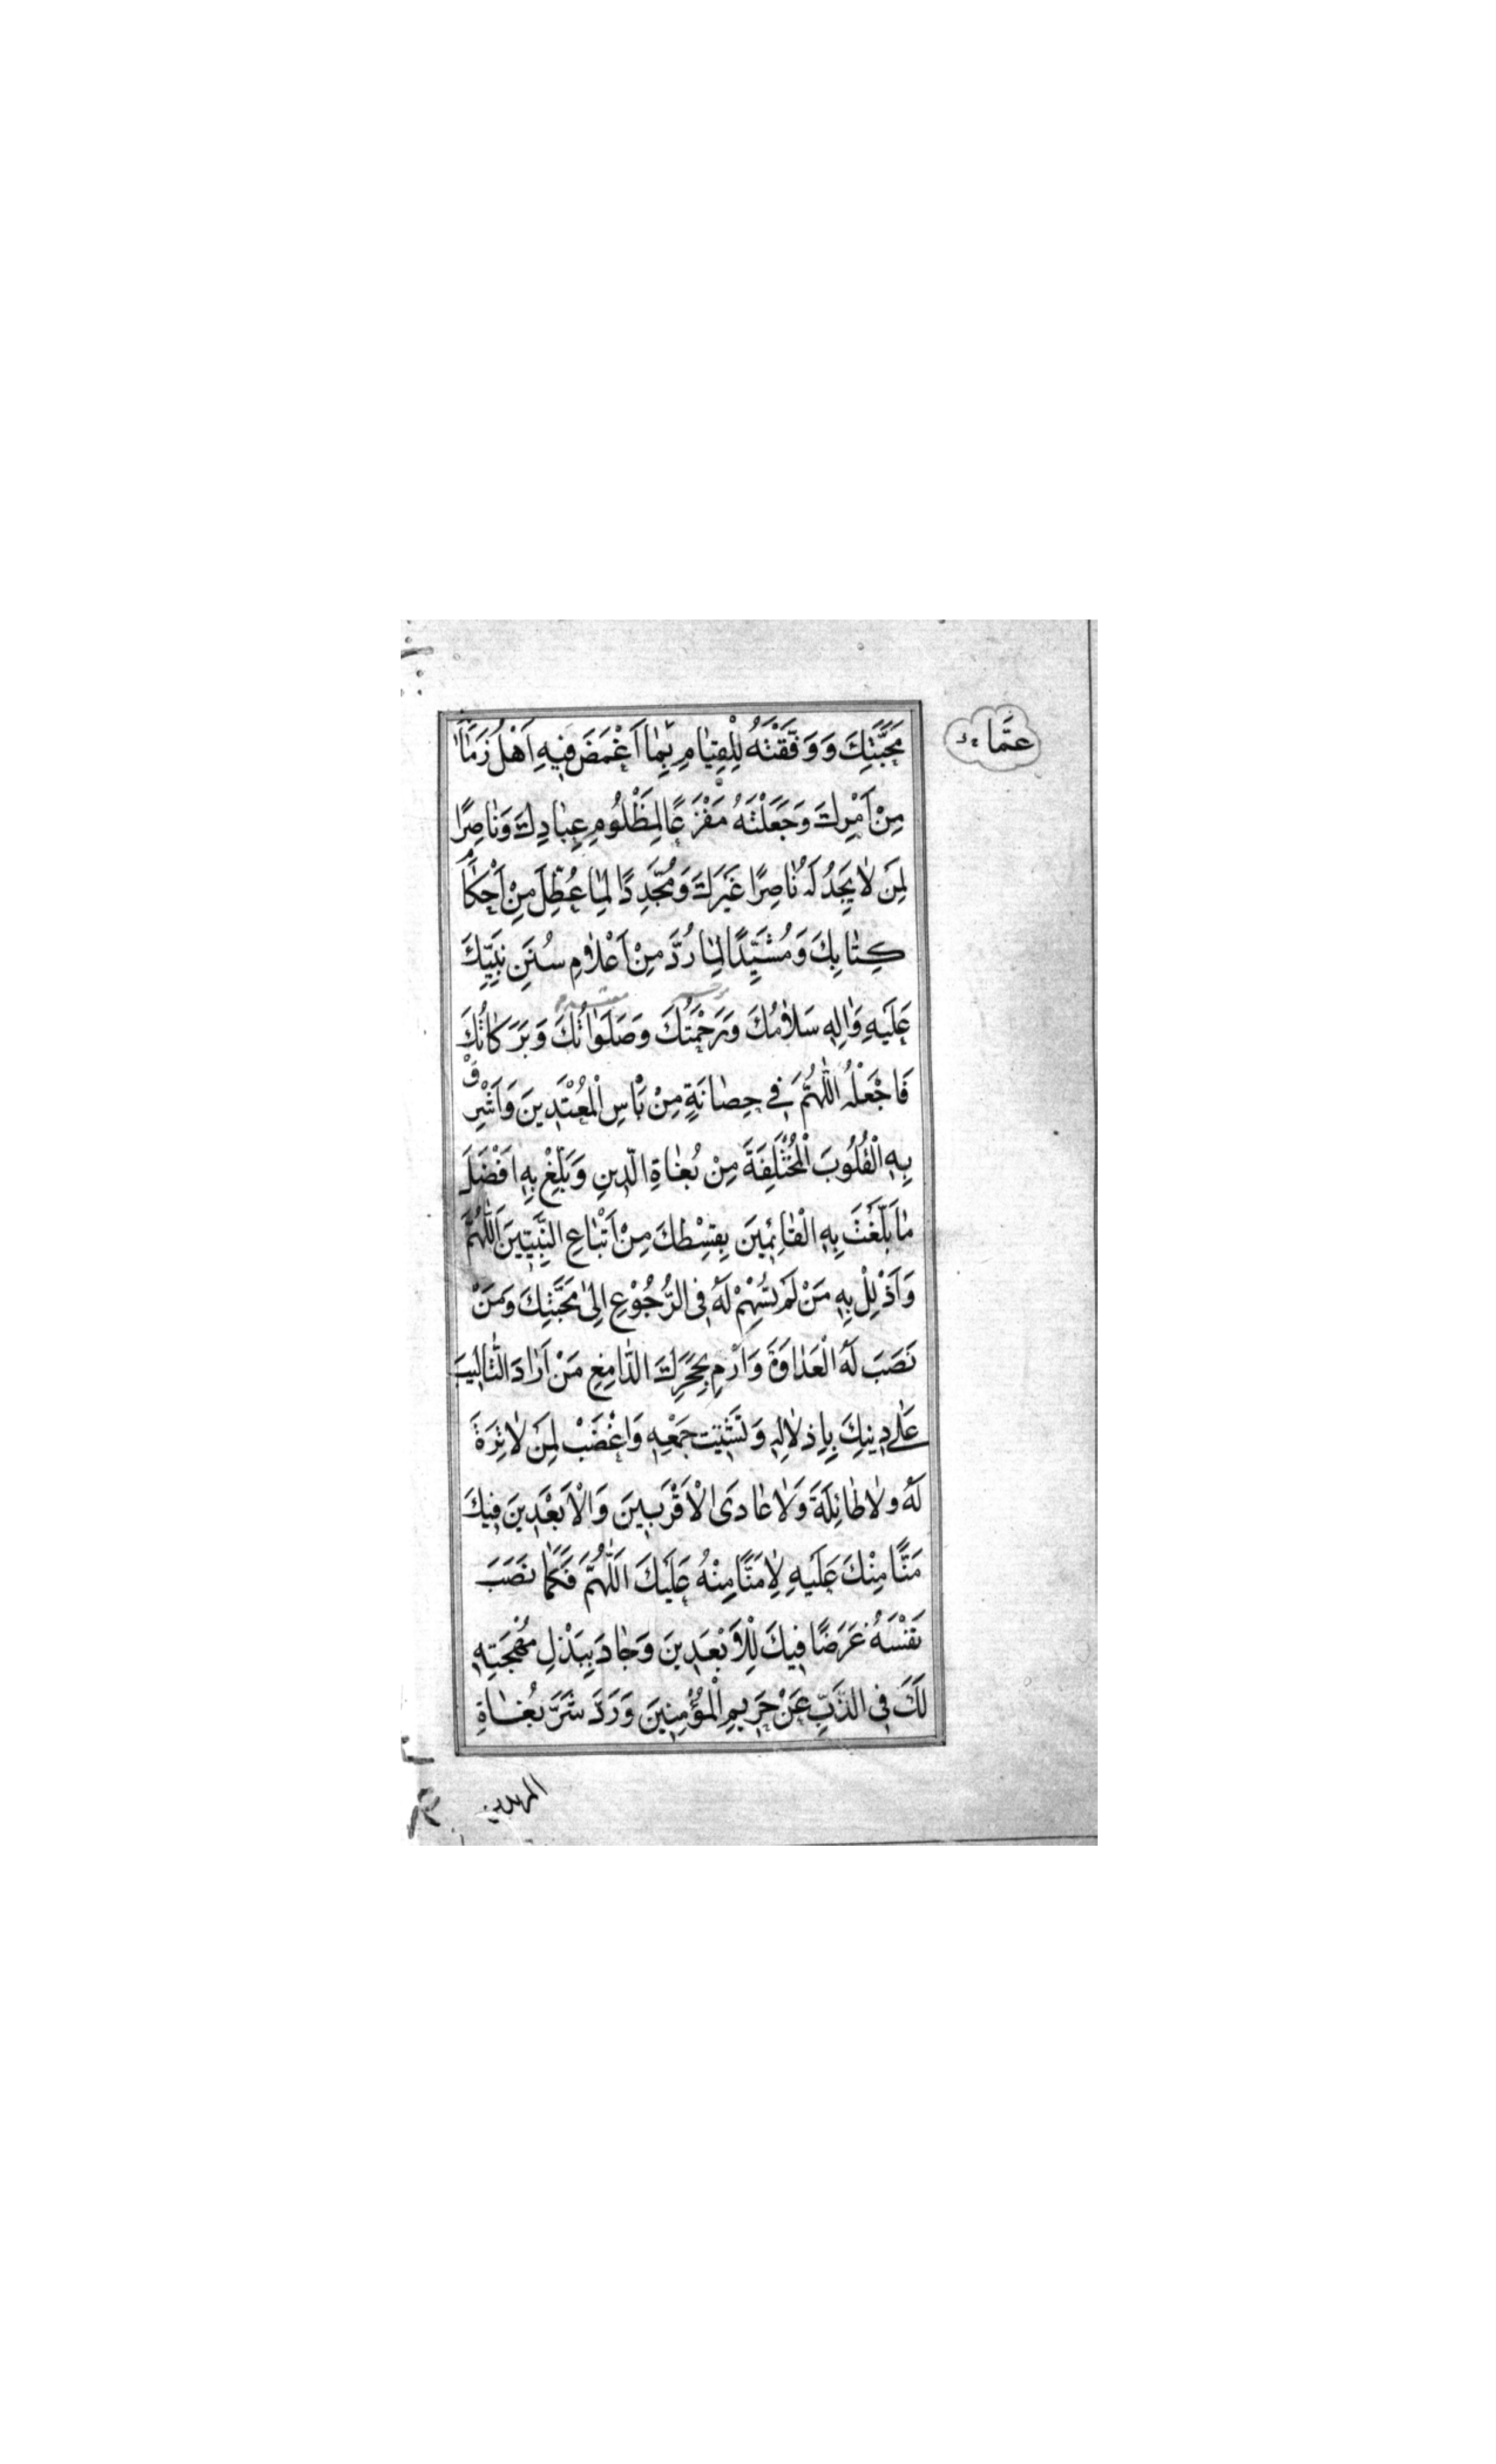 عمّا
مَحَبَّتِكَ وَوَفَّقْتَهُ لِلْقِيٰامِ بِمٰا اَغْمَضَ فِيهِ اَهْلُ زَمٰا
مِنْ اَمْرِكَ وَجَعَلْتَهُ مَفْزَعًا لِمَظْلُومِ عِبٰادِكَ وَنٰاصِرًا
لِمَنْ لٰا يَجِدُ لَهُ نٰاصِرًا غَيْرَكَ وَمُجَدِّدًا لِمٰا عُطِّلَ مِنْ اَحْكٰامِ
كِتٰابِكَ وَمُشَيِّدًا لِمٰا رُدَّ مِنْ اَعْلٰامِ سُنَنِ نَبِيِّكَ
عَلَيْهِ وَاٰلِهِ سَلٰامُكَ وَرَحْمَتُكَ وَصَلَوٰاتُكَ وَبَرَكٰاتُكَ
فَاجْعَلْهُ اللّٰهُمَّ فِي حِصٰانَةٍ مِنْ بَاْسِ الْمُعْتَدِينَ وَاَشْرِقْ
بِهِ الْقُلُوبَ الْمُخْتَلِفَةَ مِنْ بُغٰاةِ الدِّينِ وَبَلِّغْ بِهِ اَفْضَلَ
مٰا بَلَّغْتَ بِهِ الْقٰائِمِينَ بِقِسْطِكَ مِنْ اَتْبٰاعِ النَّبِيِّينَ اَللّٰهُمَّ
وَاَذْلِلْ بِهِ مَنْ لَمْ تُسْهِمْ لَهُ فِي الرُّجُوْعِ اِلىٰ مَحَبَّتِكَ وَمَنْ
نَصَبَ لَهُ الْعَدٰاوَةَ وَارْمِ بِحَجَرِكَ الدّٰامِغِ مَنْ اَرٰادَ التَّاْلِيبَ
عَلٰى دِينِكَ بِاِذْلٰالِهِ وَتَشْتِيتِ جَمْعِهِ وَاغْضَبْ لِمَنْ لٰا تِرَةَ
لَهُ وَلٰا طٰائِلَةَ وَلٰا عٰادَى الْاَقْرَبِينَ وَالْاَبْعَدِينَ فِيكَ
مَنًّا مِنْكَ عَلَيْهِ لٰا مَنًّا مِنْهُ عَلَيْكَ اَللّٰهُمَّ فَكَمٰا نَصَبَ
نَفْسَهُ غَرَضًا فِيكَ لِلْاَبْعَدِينَ وَجٰادَ بِبَذْلِ مُهْجَتِهِ
لَكَ فِي الذَّبِّ عَنْ حَرِيمِ الْمُؤْمِنِينَ وَرَدَّ شَرَّ بُغٰاةِ
المرتدين